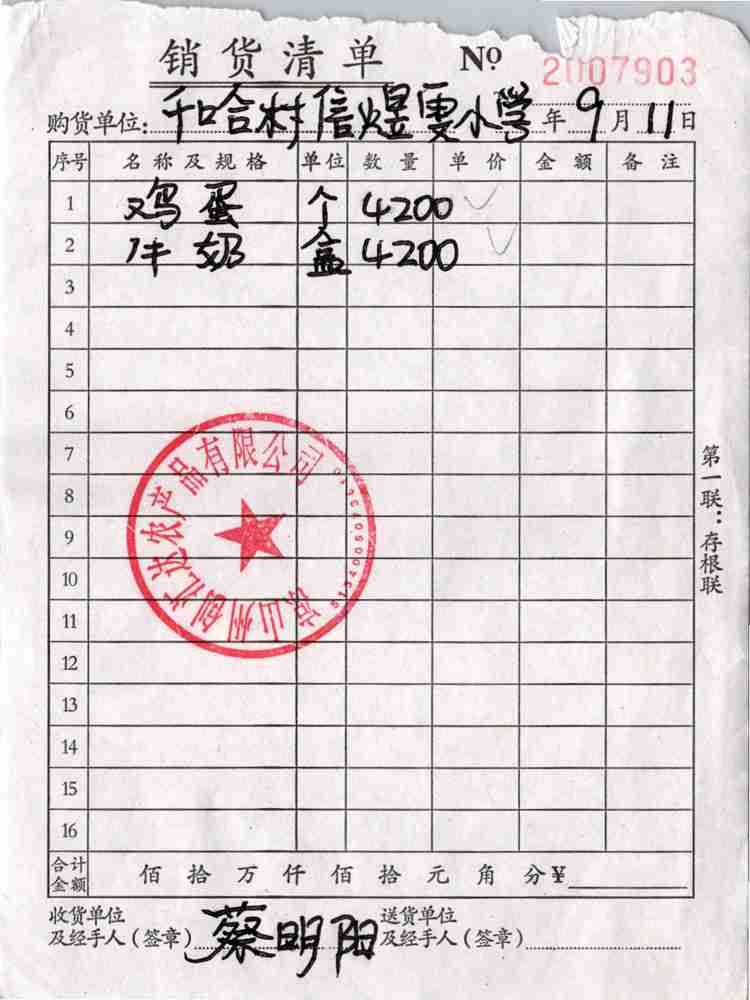 销货清单 № 2007903
购货单位: 和合村信煜雯小学 年 9 月 11 日
序号 名称及规格 单位 数量 单价 金额 备注
1 鸡蛋 个 4200
2 牛奶 盒 4200
3
4
5
6
7
8
9
10
11
12
13
14
15
16
合计金额 佰 拾 万 仟 佰 拾 元 角 分 ¥
收货单位及经手人(签章) 蔡明阳 送货单位及经手人(签章)
第一联：存根联
凉山州创汇达农产品有限公司